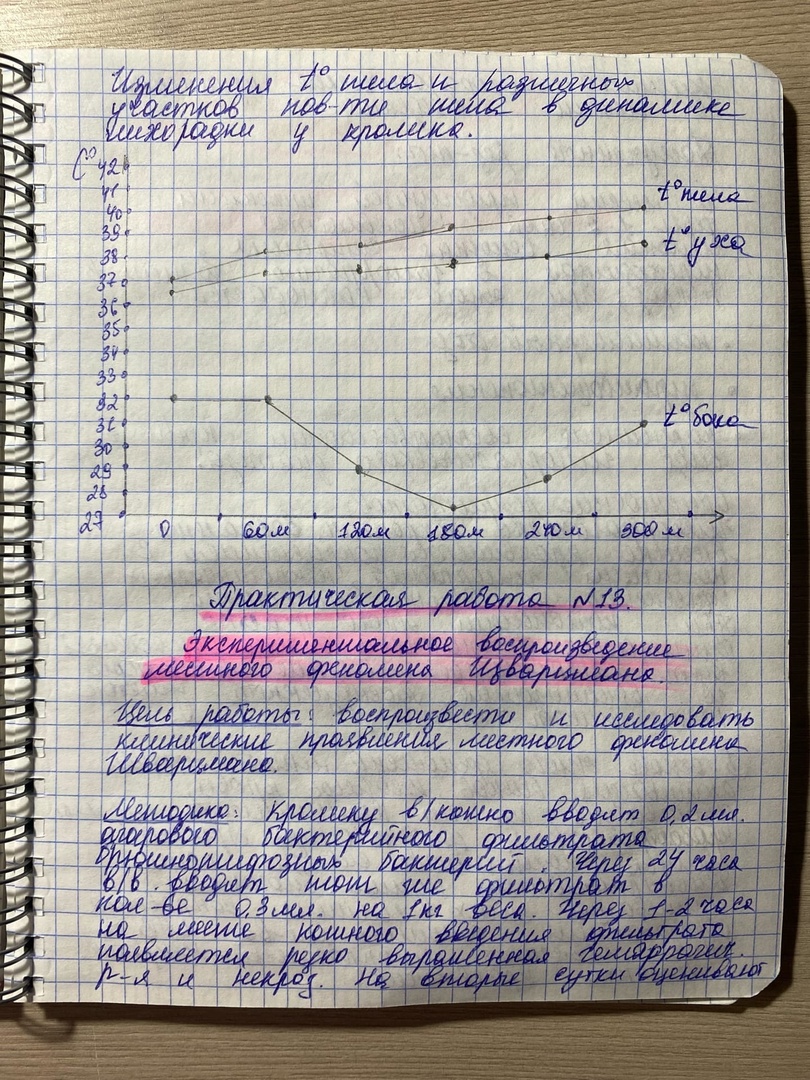 Изменения t° тела и различных
участков пов-ти тела в динамике
лихорадки у кролика.
C°
42
41
40
39
38
37
36
35
34
33
32
31
30
29
28
27
t° тела
t° уха
t° бока
0 60м 120м 180м 240м 300м
Практическая работа N13.
Экспериментальное воспроизведение
местного феномена Шварцмана.
Цель работы: воспроизвести и исследовать
клинические проявления местного феномена
Шварцмана.
Методика: Кролику в/кожно вводят 0,2мл.
агарового бактерийного фильтрата
брюшнотифозных бактерий. Через 24 часа
в/в. вводят тот же фильтрат в
кол-ве 0,3мл. на 1кг веса. Через 1-2 часа
на месте кожного введения фильтрата
появляется резко выраженная геморрагич.
р-я и некроз. На вторые сутки оценивают